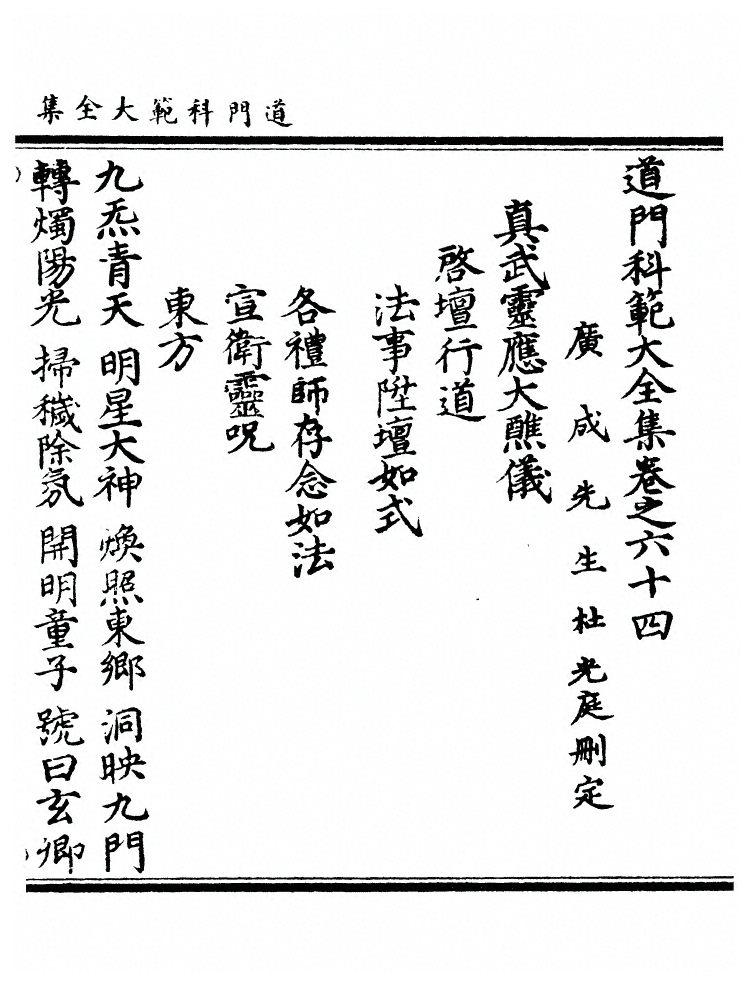 道門科範大全集
道門科範大全集卷之六十四
廣成先生杜光庭刪定
真武靈應大醮儀
啓壇行道
法事陞壇如式
各禮師存念如法
宣衛靈呪
東方
九炁青天　明星大神　煥照東鄉　洞映九門
轉燭陽光　掃穢除氛　開明童子　號曰玄卿